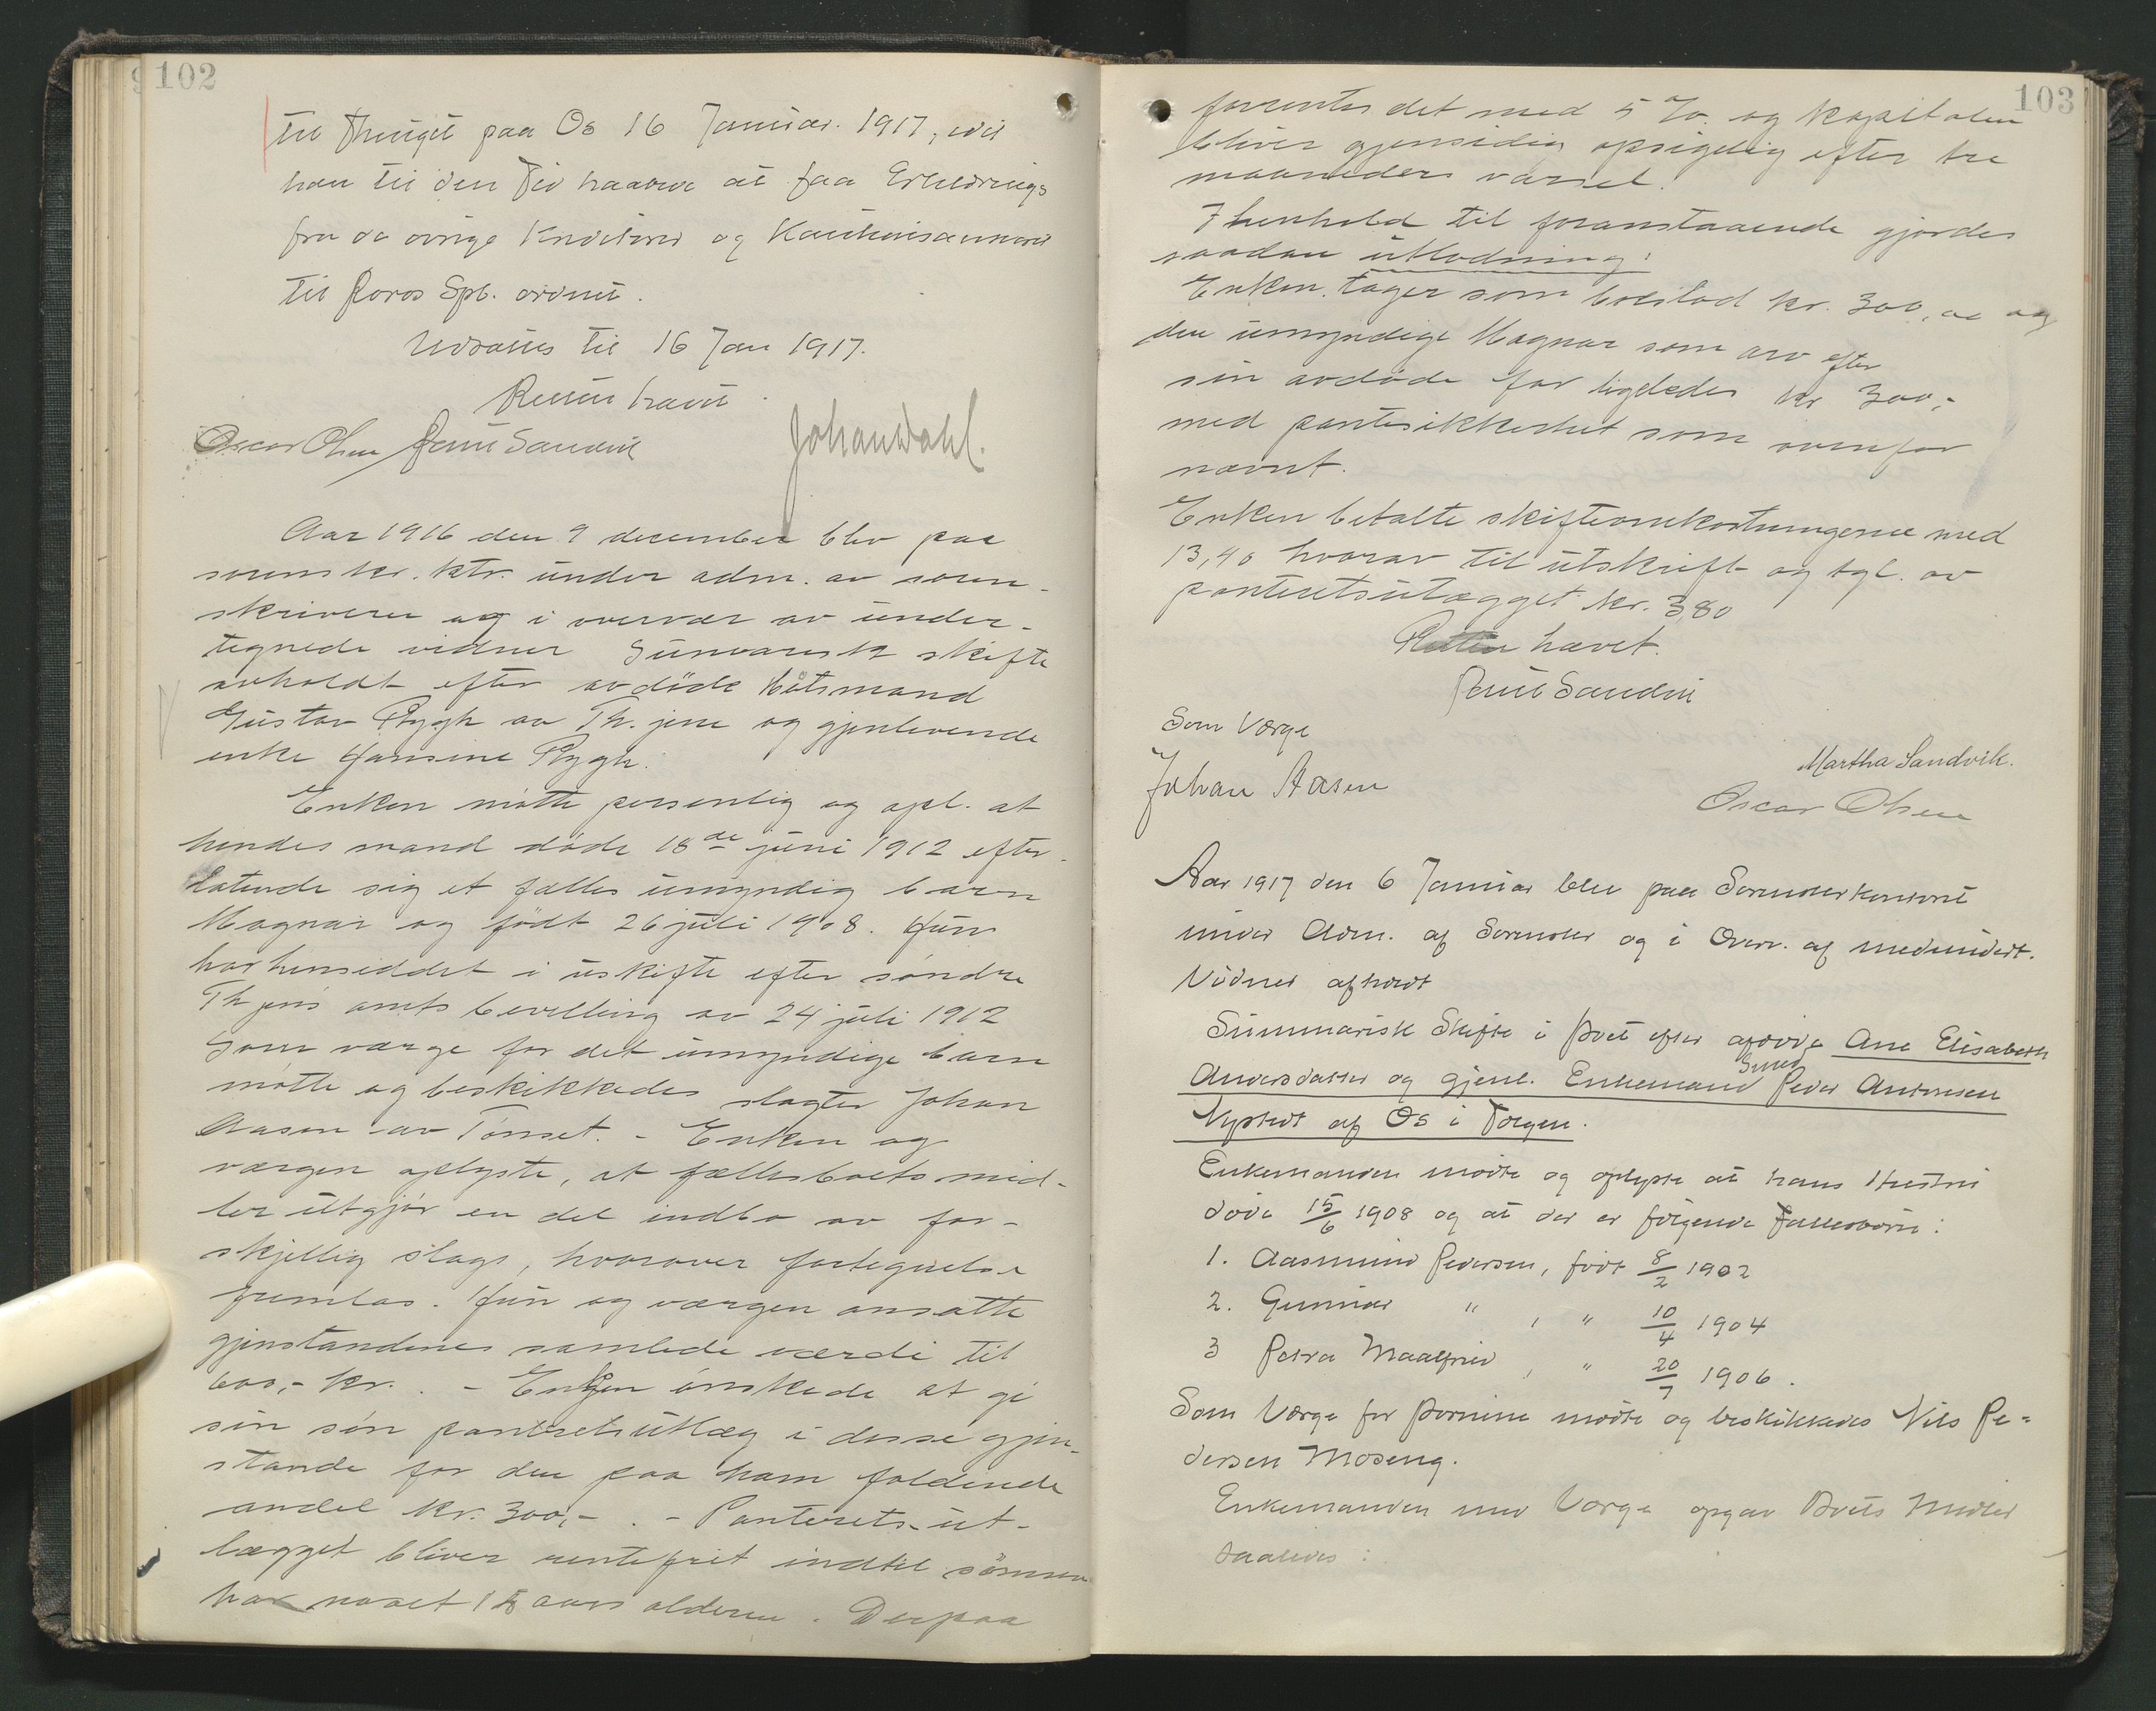 102
til Thinget paa Os 16 Januar. 1917, vil
han til den Tid haabe at faa Erklærings
fra de øvrige Kreditorer og
til Røros Spb. ordnet.
Udsattes til 16 Jan 1917.
Retten hævet.
Oscar Olsen Paul Sandvik Johan Dahl.
Aar 1916 den 9 december blev paa
sorenskr. ktr. under adm. av soren-
skriveren og i overvær av under-
tegnede vidner Sumarisk skifte
avholdt efter avdöde
Gustav Rygh av Th.jem og gjenlevende
enke Hansine Rygh.
Enken mötte personlig og opl. at
hendes mand döde 18de juni 1912 efter-
latende sig et fælles umyndig barn
Magnar og födt 26 juli 1908. Hun
har hensiddet i uskifte efter söndre
Th.jems amts bevilling av 24 juli 1912
Som værge for det umyndige barn
mötte og beskikkedes slagter Johan
Aasen av Tönset. - Enken og
værgen oplyste, at fællesboets mid-
ler utgjör en del indbo av for-
skjellig slags, hvorover fortegnelse
fremlas. Hun og værgen ansatte
gjenstandenes samlede værdi til
600,- kr. . - Enken önskede at gi
sin sön panteretsutlæg i disse gjen-
stande for den paa ham faldende
andel kr. 300,- . - Panterets-ut-
lægget bliver rentefrit indtil sönnen
har naaet 15 aars alderen. Derpaa
103
forrentes det med 5 %. og kapitalen
bliver gjensidig opsigelig efter tre
maaneders varsel.
I henhold til foranstaaende gjordes
saadan utlodning:
Enken tager som boeslod kr. 300,00 og
den umyndige Magnar som arv efter
sin avdöde far ligeledes kr 300,-
med pantesikkerhet som ovenfor
nævnt.
Enken betalte skifteomkostningerne med
13,40 hvorav til utskrift og tgl. av
panteretsutlægget kr. 3,80
Retten hævet.
Paul Sandvik
Som Værge
Johan Aasen
Martha Sandvik.
Oscar Olsen
Aar 1917 den 6 Januar blev paa Sorenskrkontoret
under Adm. af Sorenskr og i Overv. af medundert.
Vidner afholdt
Summarisk Skifte i Boet efter afdøde Ane Elisabeth
Andersdatter og gjenl. Enkemand Smed Peder Antonsen
Nystedt af Os i Tolgen.
Enkemanden mødte og oplyste at hans Hustru
døde 15/6 1908 og at der er følgende Fællesbørn:
1. Aasmund Pedersen, født 8/2 1902
2. Gunnar " , " 10/4 1904
3 Petra Maalfrid , " 20/7 1906.
Som Værge for Børnene mødte og beskikkedes Nils Pe-
dersen Moseng.
Enkemanden med Værge opgav Boets Midler
saaledes: